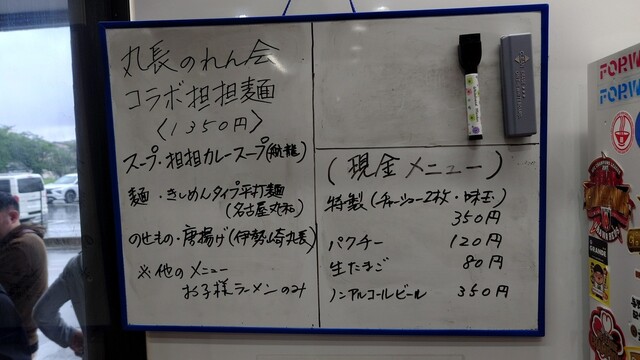 丸長のれん会
コラボ担担麺
〈1350円〉
スープ・担担カレースープ
麺・きしめんタイプ平打麺
(名古屋丸和)
のせもの・唐揚げ(伊勢崎丸長)
※他のメニュー
お子様ラーメンのみ
(現金メニュー)
特製(チャーシュー2枚・味玉)
350円
パクチー 120円
生たまご 80円
ノンアルコールビール 350円
FORW
FORW